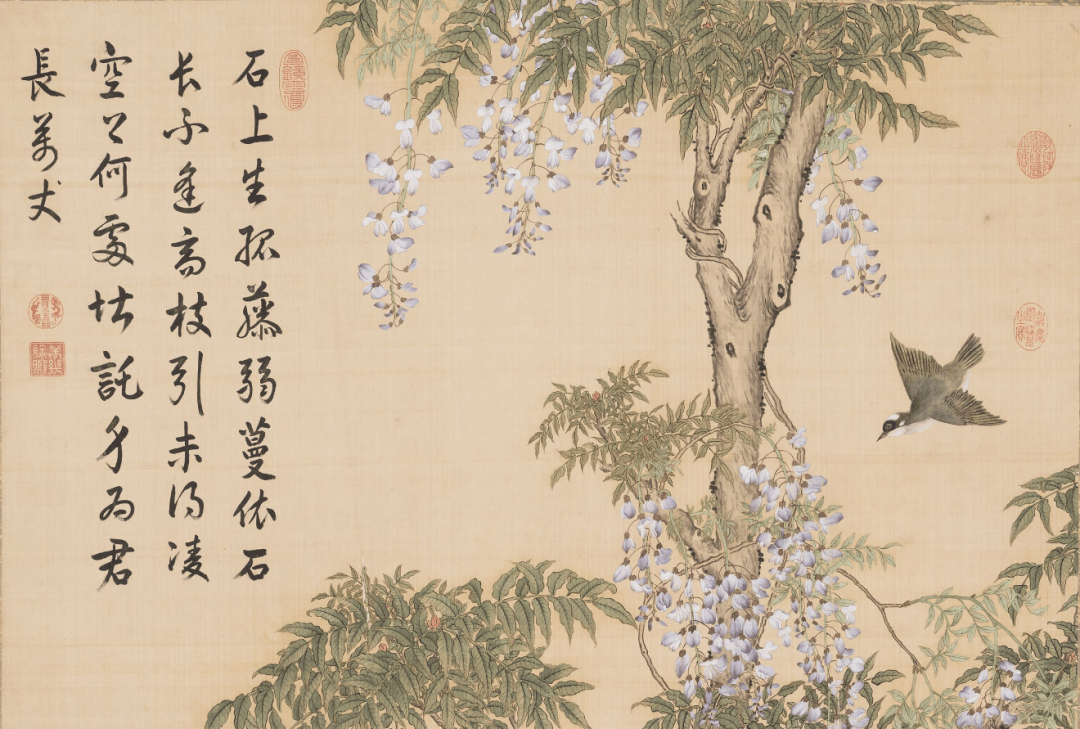 石上生孤藤弱蔓依石
长不逢高枝引未得凌
空上何處堪託身為君
長萬丈